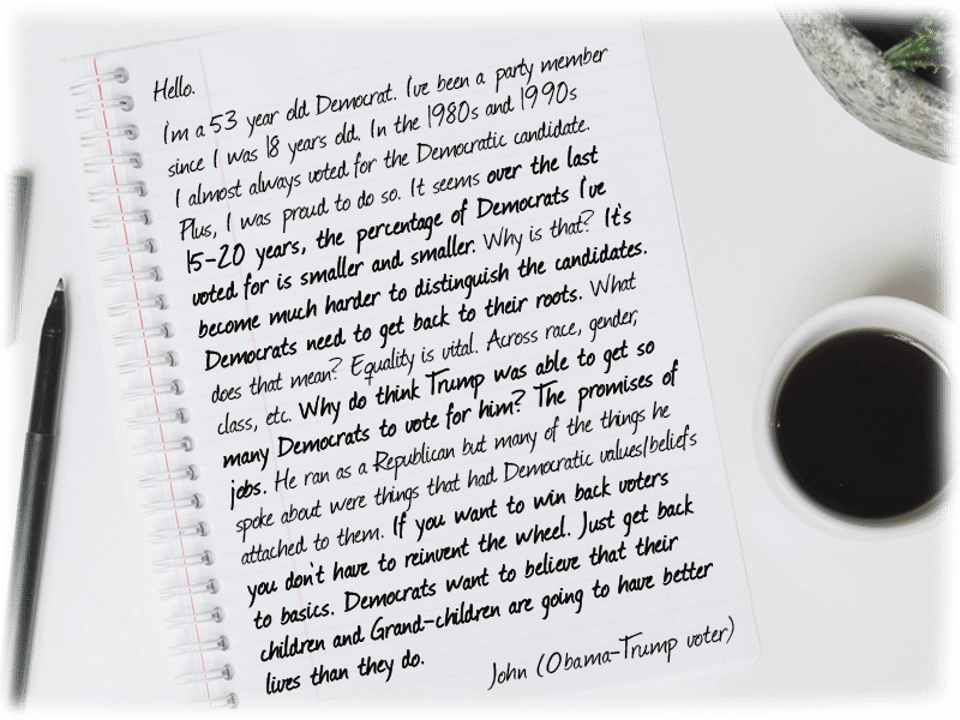 Hello.
I'm a 53 year old Democrat. I've been a party member
since I was 18 years old. In the 1980s and 1990s
I almost always voted for the Democratic candidate.
Plus, I was proud to do so. It seems over the last
15-20 years, the percentage of Democrats I've
voted for is smaller and smaller. Why is that? It's
become much harder to distinguish the candidates.
Democrats need to get back to their roots. What
does that mean? Equality is vital. Across race, gender,
class, etc. Why do think Trump was able to get so
many Democrats to vote for him? The promises of
jobs. He ran as a Republican but many of the things he
spoke about were things that had Democratic values/beliefs
attached to them. If you want to win back voters
you don't have to reinvent the wheel. Just get back
to basics. Democrats want to believe that their
children and Grand-children are going to have better
lives than they do.
John (Obama-Trump voter)